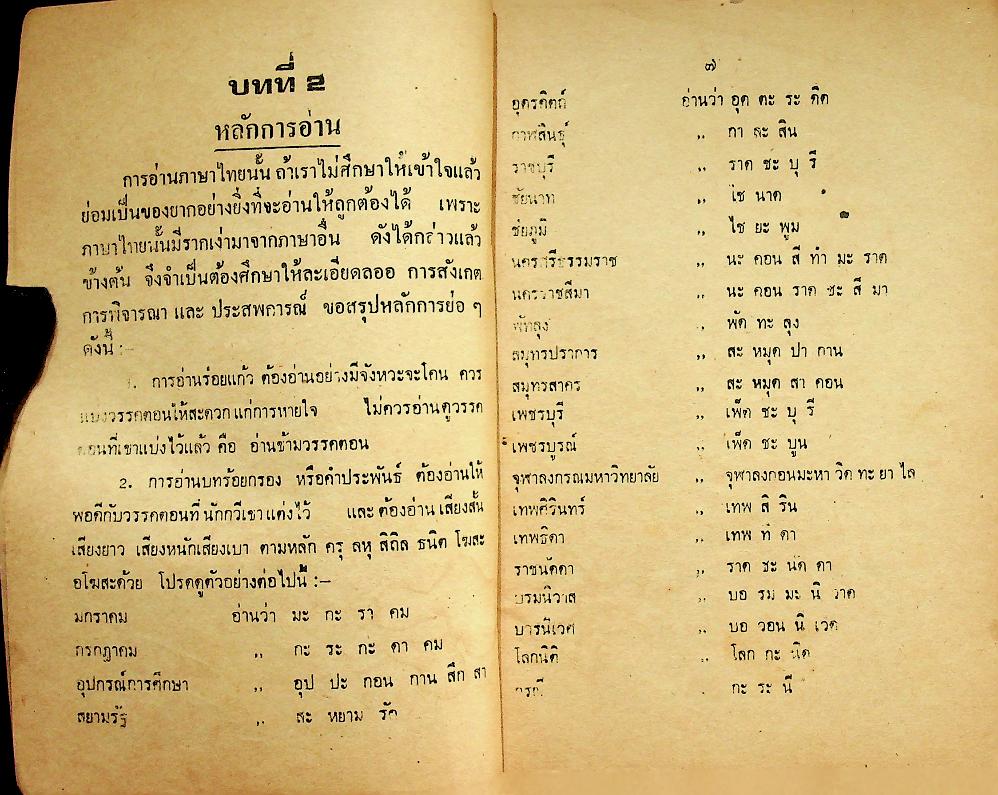 บทที่ 2
หลักการอ่าน
การอ่านภาษาไทยนั้น ถ้าเราไม่ศึกษาให้เข้าใจแล้ว
ย่อมเป็นของยากอย่างยิ่งที่จะอ่านให้ถูกต้องได้ เพราะ
ภาษาไทยนั้นมีรากเง่ามาจากภาษาอื่น ดังได้กล่าวแล้ว
ข้างต้น จึงจำเป็นต้องศึกษาให้ละเอียดลออ การสังเกต
การพิจารณา และ ประสพการณ์ ขอสรุปหลักการย่อ ๆ
ดังนี้ :—
1. การอ่านร่อยแก้ว ต้องอ่านอย่างมีจังหวะจะโคน ควร
แบ่งวรรคตอนให้สะดวกแก่การหายใจ ไม่ควรอ่านตูวรรค
ตอนที่เขาแบ่งไว้แล้ว คือ อ่านข้ามวรรคตอน
2. การอ่านบทร้อยกรอง หรือคำประพันธ์ ต้องอ่านให้
พอดีกับวรรคตอนที่นักกวีเขาแต่งไว้ และต้องอ่านเสียงสั้น
เสียงยาว เสียงหนักเสียงเบา ตามหลัก ครุ ลหุ สิถิล ธนิต โฆสะ
อโฆสะด้วย โปรดดูตัวอย่างต่อไปนี้ :—
มกราคม อ่านว่า มะ กะ รา คม
กรกฎาคม ,, กะ ระ กะ ดา คม
อุปกรณ์การศึกษา ,, อุป ปะ กอน กาน สึก สา
สยามรัฐ ,, สะ หยาม รัด
๗
อุตรดิตถ์ อ่านว่า อุด ตะ ระ ดิด
กาฬสินธุ์ ,, กา ละ สิน
ราชบุรี ,, ราด ชะ บุ รี
ชัยนาท ,, ไช นาด
ชัยภูมิ ,, ไช ยะ พูม
นครศรีธรรมราช ,, นะ คอน สี ทำ มะ ราด
นครราชสีมา ,, นะ คอน ราด ชะ สี มา
พัทลุง ,, พัด ทะ ลุง
สมุทรปราการ ,, สะ หมุด ปา กาน
สมุทรสาคร ,, สะ หมุด สา คอน
เพชรบุรี ,, เพ็ด ชะ บุ รี
เพชรบูรณ์ ,, เพ็ด ชะ บูน
จุฬาลงกรณมหาวิทยาลัย ,, จุฬาลงกอนมะหา วิด ทะ ยา ไล
เทพศิรินทร์ ,, เทพ สิ ริน
เทพธิดา ,, เทพ ทิ ดา
ราชนัดดา ,, ราด ชะ นัด ดา
บรมนิวาส ,, บอ รม มะ นิ วาด
บารนิเวศ ,, บอ วอน นิ เวด
โลกนิติ ,, โลก กะ นิด
กรณี กะ ระ นี